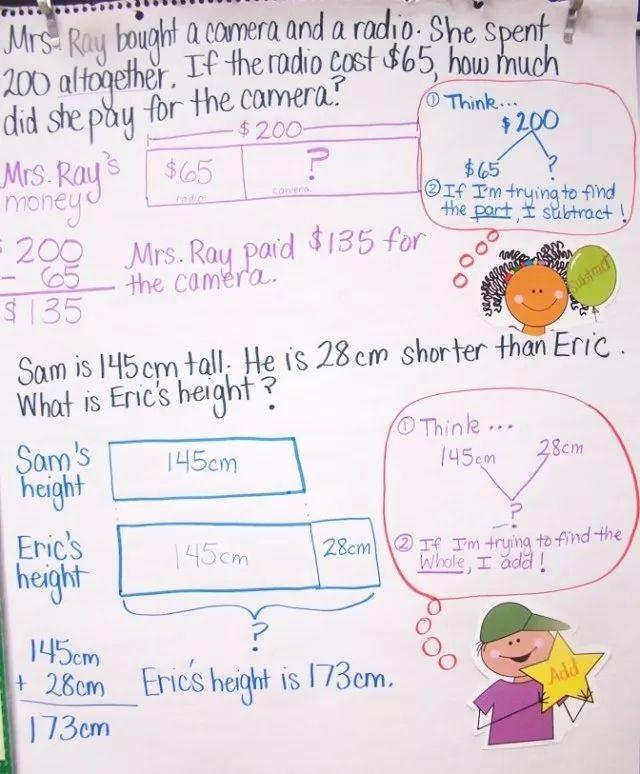 Mrs. Ray bought a camera and a radio. She spent
200 altogether. If the radio cost $65, how much
did she pay for the camera?
$200
Mrs. Ray's
money
$65
radio
?
camera
① Think...
$200
$65
?
② If I'm trying to find
the part, I subtract!
200
- 65
$135
Mrs. Ray paid $135 for
the camera.
Subtract
Sam is 145cm tall. He is 28cm shorter than Eric.
What is Eric's height?
Sam's
height
145cm
Eric's
height
145cm
28cm
?
① Think...
145cm
28cm
?
② If I'm trying to find the
Whole, I add!
145cm
+ 28cm
173cm
Eric's height is 173cm.
Add